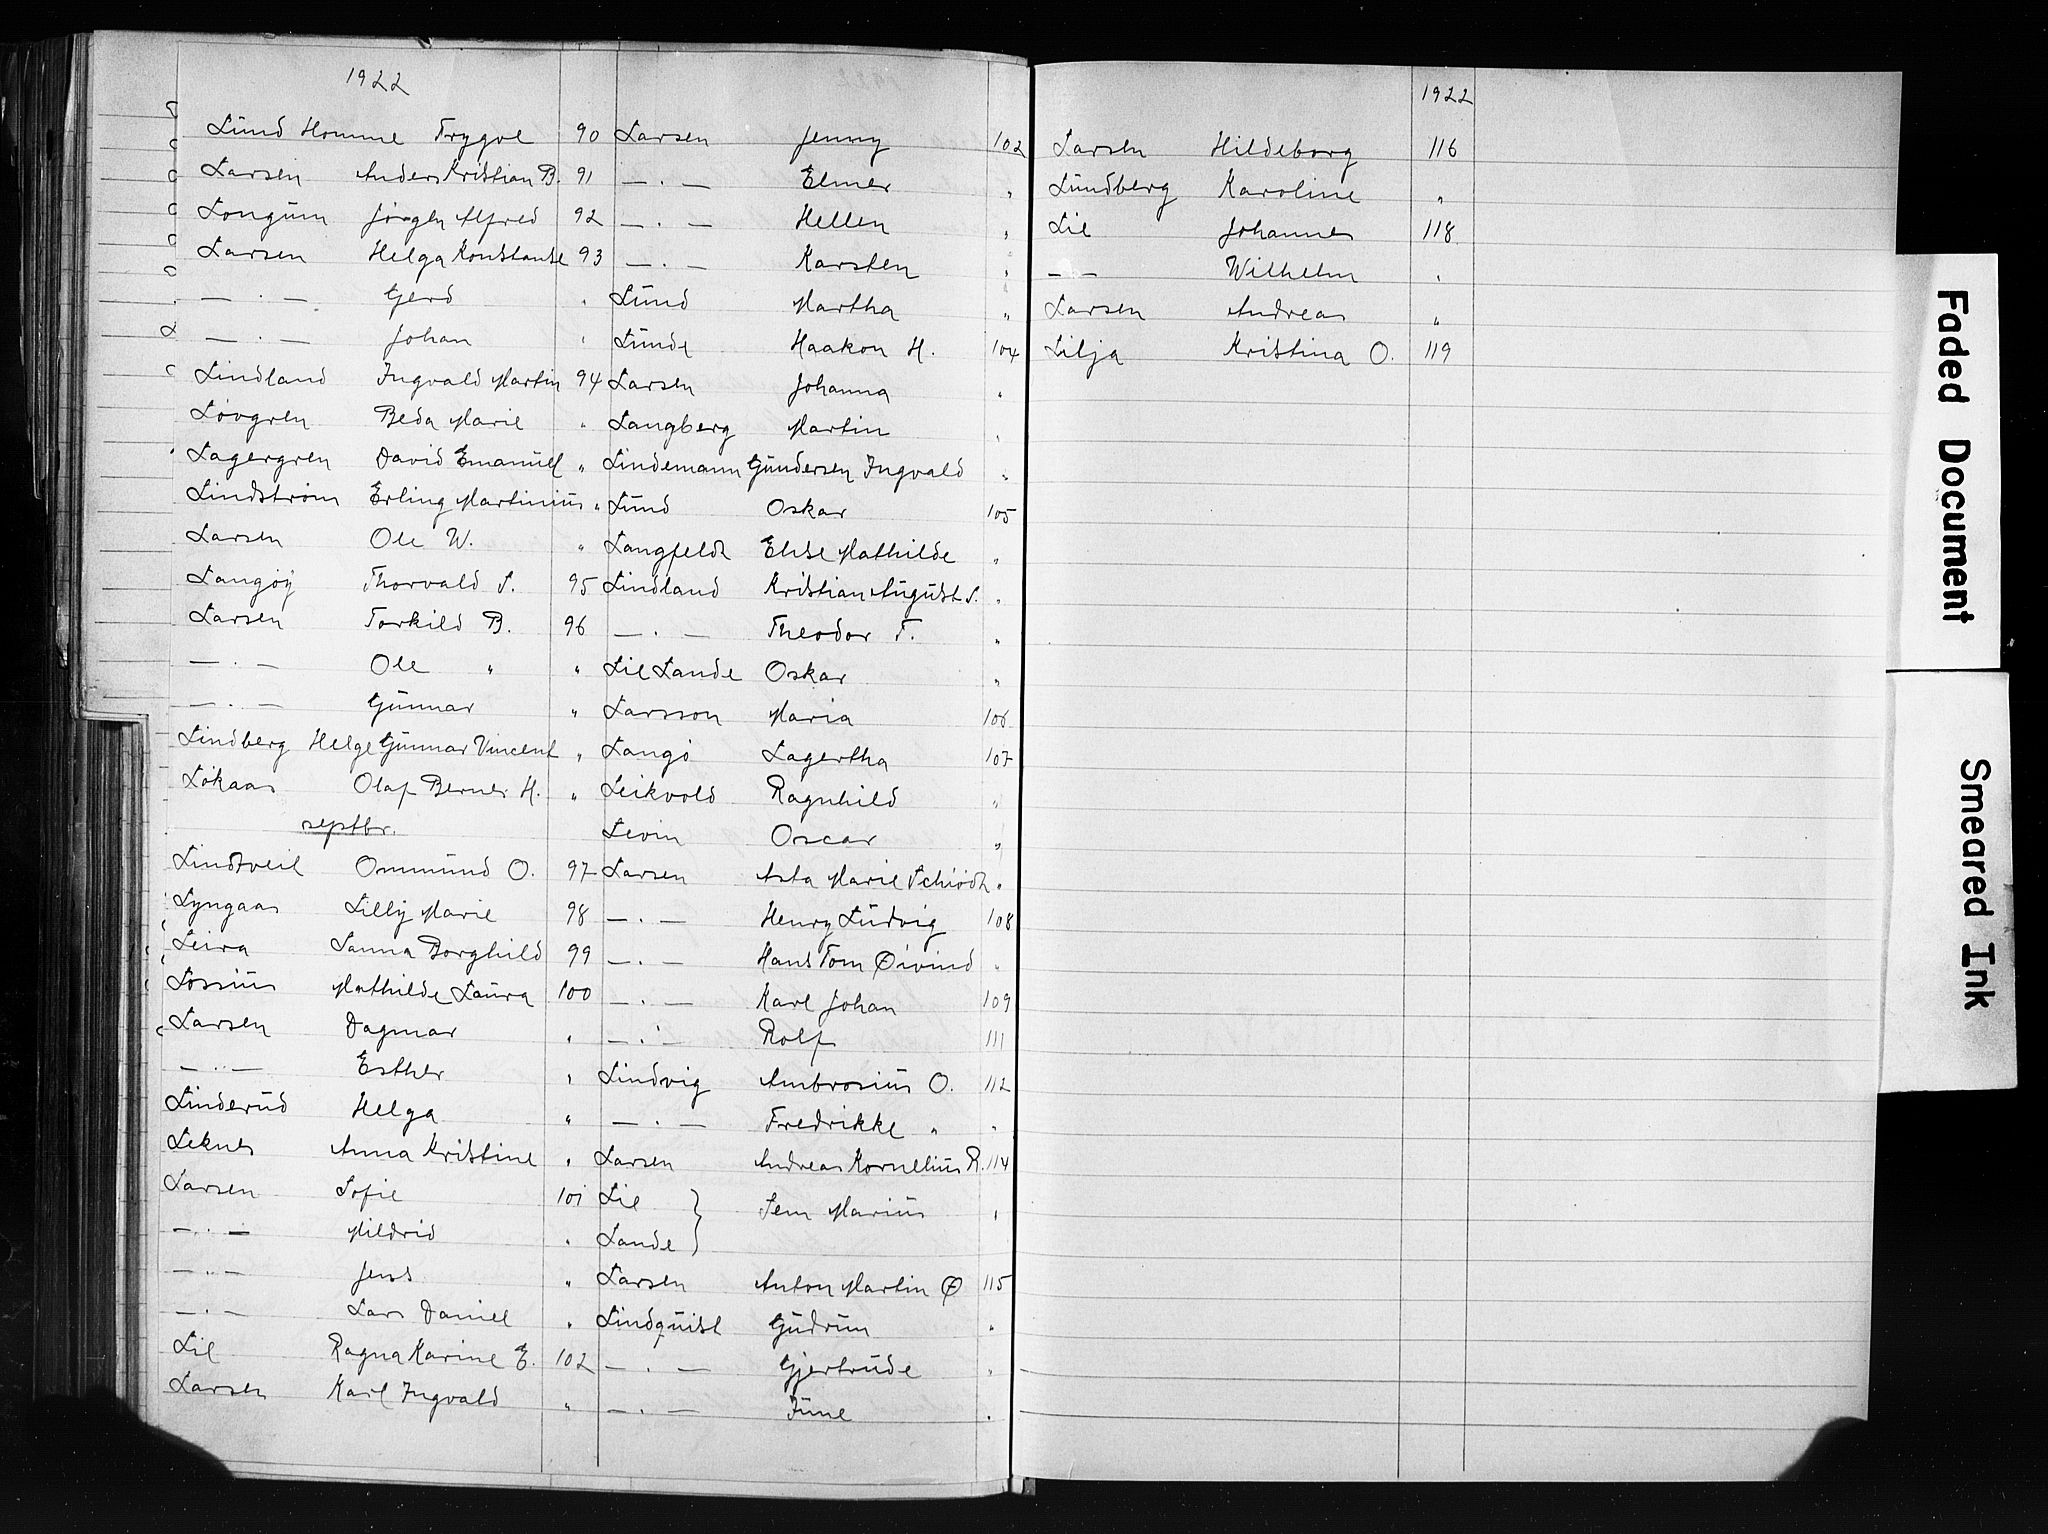 1922
Lund Homme Trygve 90
Larsen Anders Kristian B. 91
Longum Jörgen Alfred 92
Larsen Helga Konstanse 93
— . — Gerd "
— . — Johan "
Lindland Ingvald Martin 94
Lövgren Beda Marie "
Lagergren David Emanuel "
Lindström Erling Martinius "
Larsen Ole W. "
Langöy Thorvald S. 95
Larsen Torkild B. 96
— . — Ole " "
— . — Gunnar "
Lindberg Helge Gunnar Vincent "
Lökaas Olaf Berner H. "
septbr.
Lindtveit Ommund O. 97
Lyngaas Lilly Marie 98
Leira Sanna Borghild 99
Lossius Mathilde Laura 100
Larsen Dagmar "
— . — Esther "
Linderud Helga "
Leknes Anna Kristine "
Larsen Sofie 101
— . — Mildrid "
— . — Jens "
— . — Lars Daniel "
Lie Ragna Karine E. 102
Larsen Karl Ingvald "
Larsen Jenny 102
— . — Elmer "
— . — Hellen "
— . — Karsten "
Lund Martha "
Lunde Haakon H. 104
Larsen Johanna "
Langberg Martin "
Lindemann Gundersen Ingvald "
Lund Oskar 105
Langfeldt Elise Mathilde "
Lindland Kristian August S. "
— . — Theodor T. "
Lie Lande Oskar "
Larsson Maria 106
Langö Lagertha 107
Leikvold Ragnhild "
Levin Oscar "
Larsen Asta Marie Schiödt "
— . — Henry Ludvig 108
— . — Hans Tom Øivind "
— . — Karl Johan 109
— . — Rolf 111
Lindvig Ambrosius O. 112
— . — Fredrikke " "
Larsen Andreas Kornelius R. 114
Lie } Sem Marius "
Lande }
Larsen Anton Martin Ø 115
Lindquist Gudrun "
— . — Gjertrude "
— . — June "
1922
Larsen Hildeborg 116
Lundberg Karoline "
Lie Johannes 118
— — Wilhelm "
Larsen Andreas "
Lilja Kristina O. 119
Faded Document
Smeared Ink